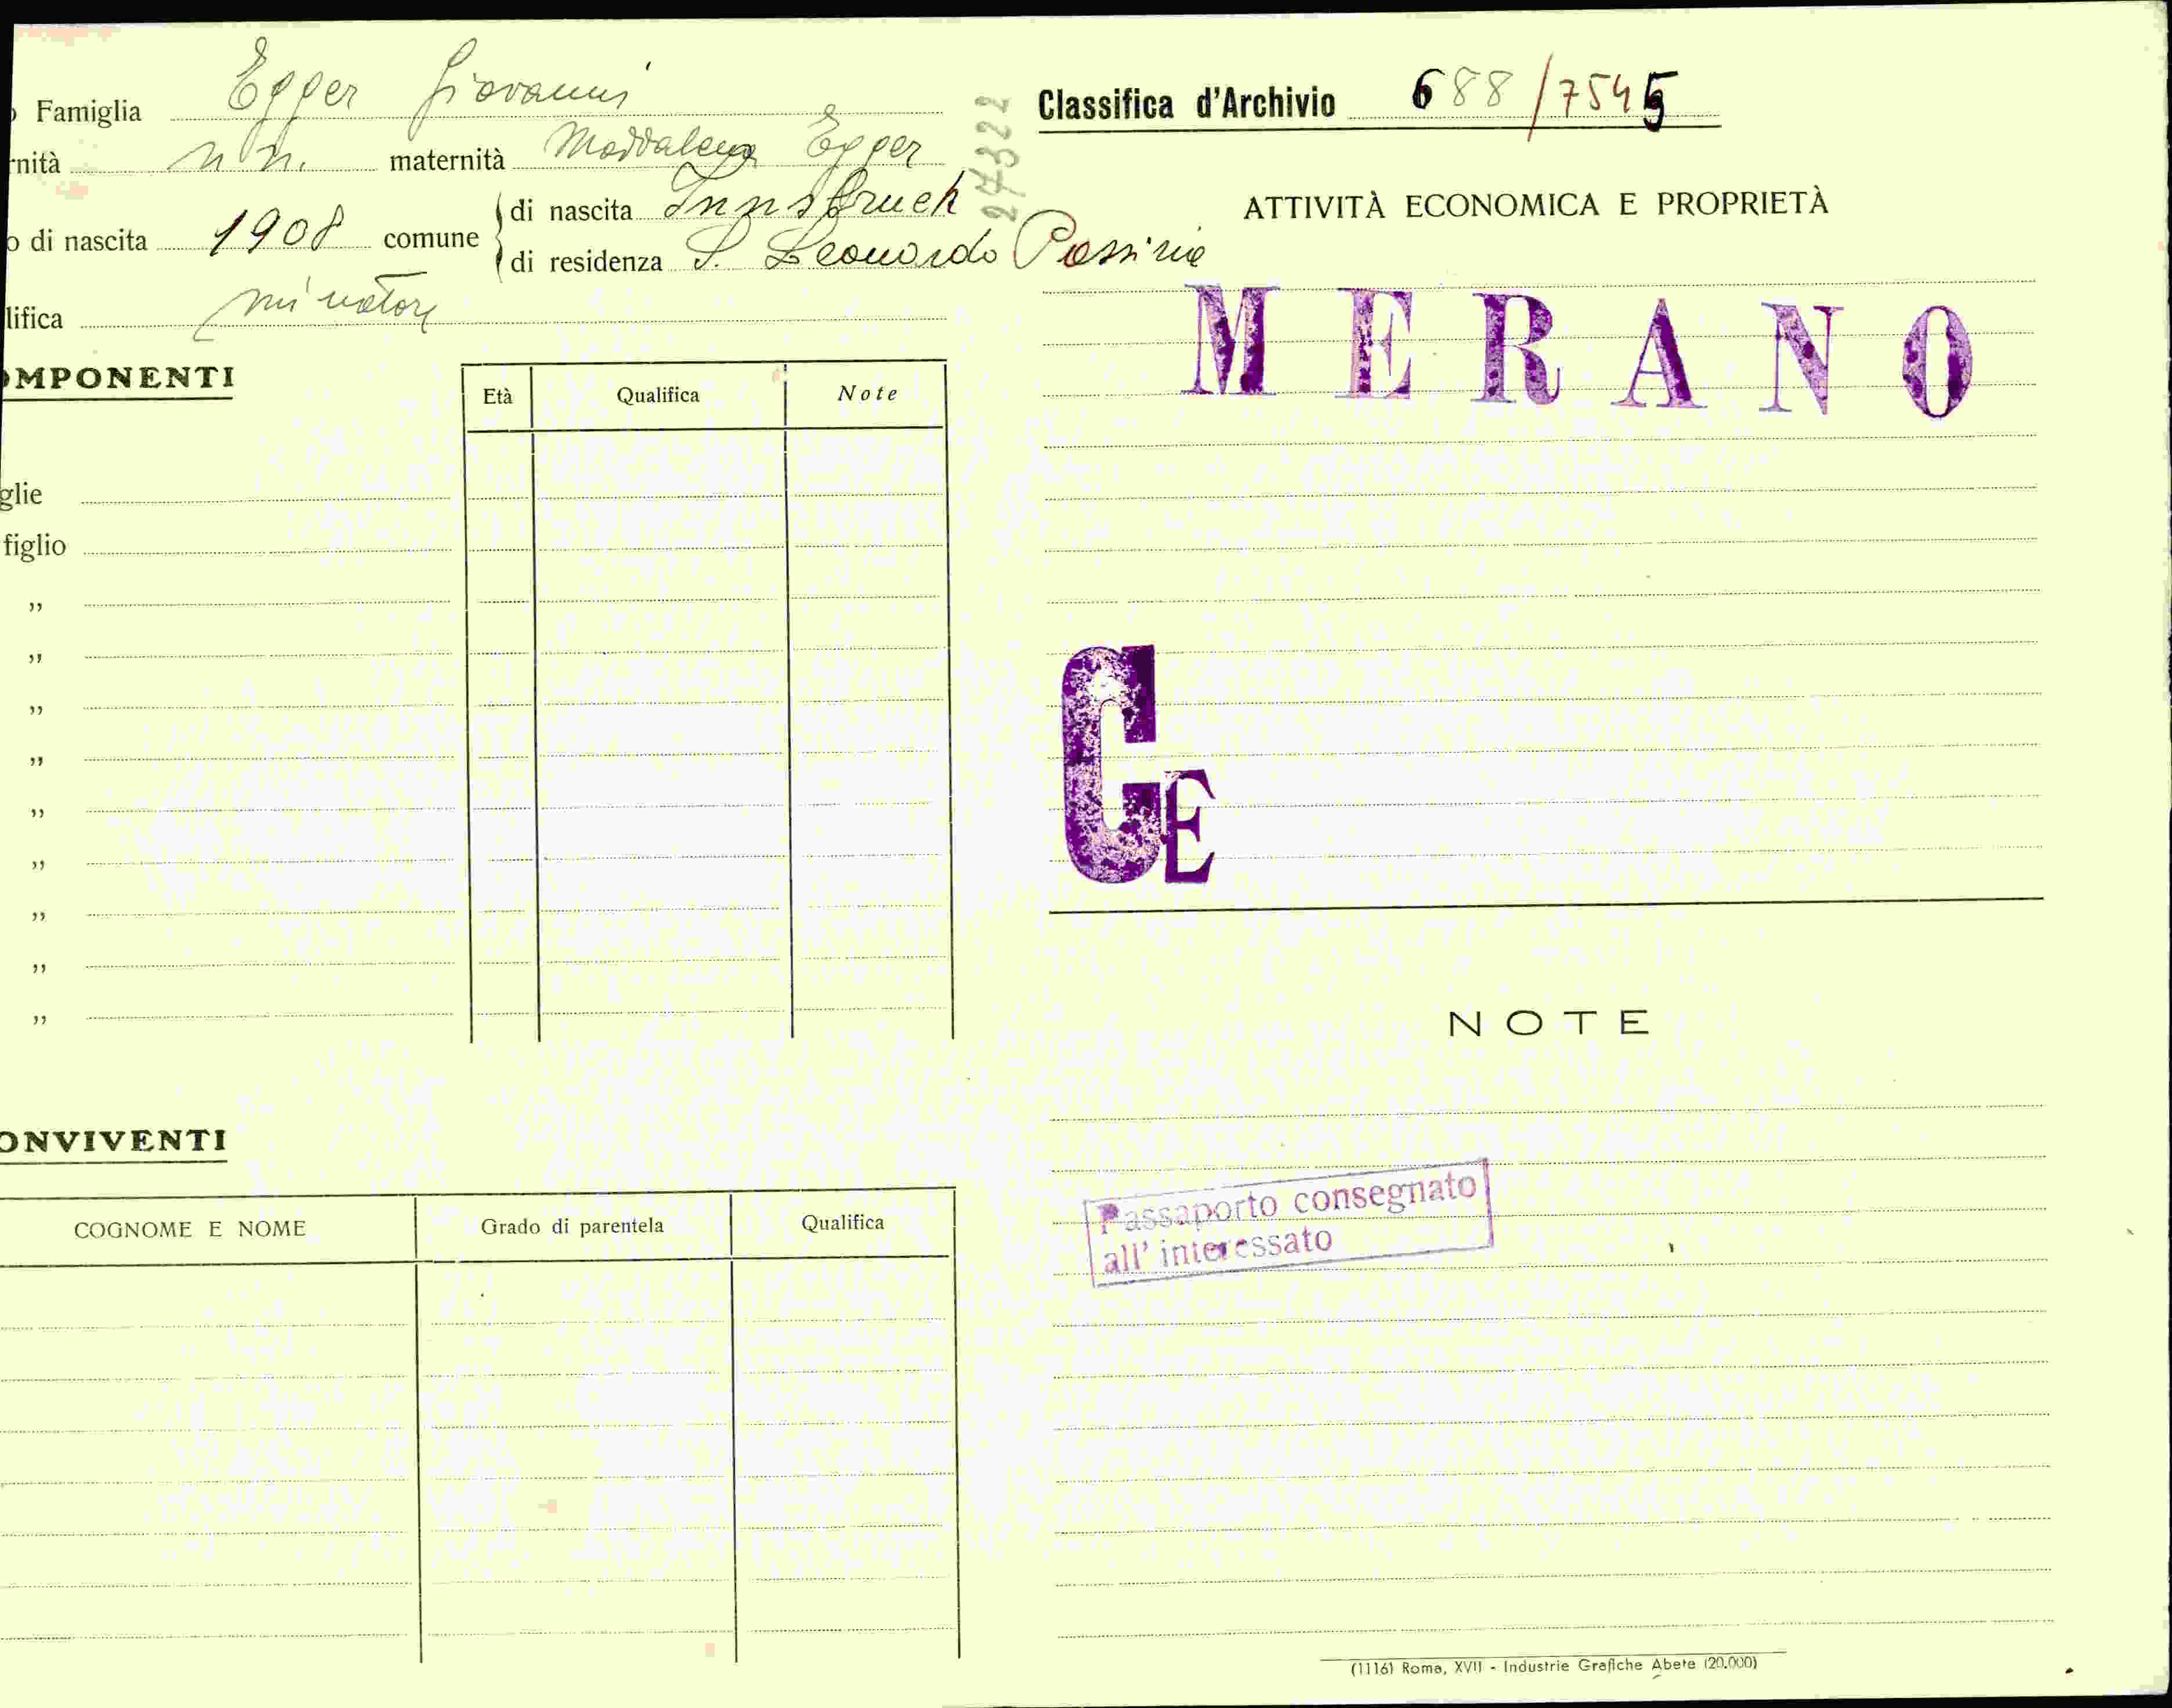 Famiglia Egger Giovanni
rnità n. n. maternità Maddalena Egger
o di nascita 1908 comune di nascita Innsbruck
di residenza S. Leonardo Passiria
lifica minatore
27322
OMPONENTI
Età Qualifica Note
glie
figlio
,,
,,
,,
,,
,,
,,
,,
,,
,,
ONVIVENTI
COGNOME E NOME Grado di parentela Qualifica
Classifica d'Archivio 688/7545
ATTIVITÀ ECONOMICA E PROPRIETÀ
MERANO
C
E
NOTE
Passaporto consegnato
all' interessato
(1116) Roma, XVII - Industrie Grafiche Abete (20.000)